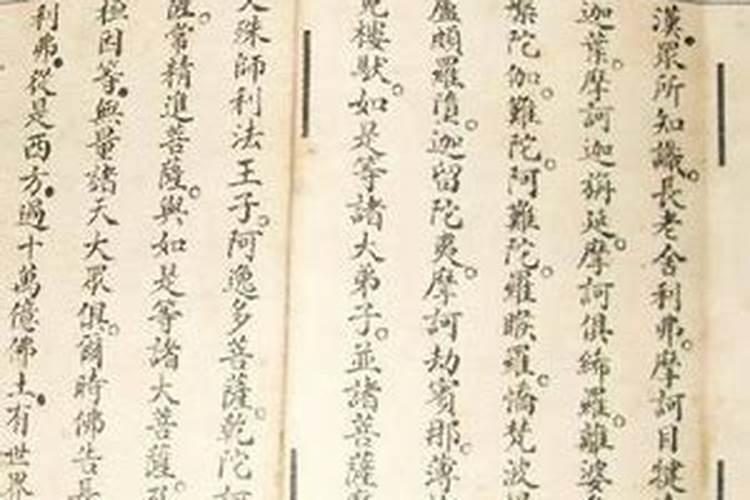 漢眾所知識長老舍利弗摩訶目犍
迦葉摩訶迦旃延摩訶俱絺羅離婆
槃陀伽難陀阿難陀羅睺羅憍梵波
盧頗羅墮迦留陀夷摩訶劫賓那薄
兜樓馱如是等諸大弟子並諸菩薩
文殊師利法王子阿逸多菩薩乾陀訶
薩常精進菩薩與如是等諸大菩薩
桓因等無量諸天大眾俱爾時佛告長
利弗從是西方過十萬億佛土有世界